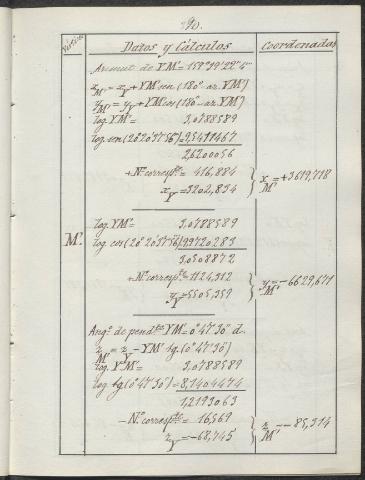 90.
Vértices
Datos y Cálculos
Coordenadas
Azimut de YM'= 159°39'22"4
x_M' = x_Y + YM' sen (180°-az. YM')
y_M' = y_Y + YM' cos (180°-az. YM')
log. YM'= 3,0788589
log. sen (20°20'37"56)= 9,5411467
2,6200056
+ N.º corresp.te= 416,884
x_Y = 3202,834
x_M' = +3619,718
M'.
log. YM'= 3,0788589
log. cos (20°20'37"56)= 9,9720283
3,0508872
+ N.º corresp.te= 1124,312
y_Y = 5505,359
y_M' = -6629,671
Ang.º de pend.te YM'= 0°47'30" d.
z_M' = z_Y - YM' tg. (0°47'30")
log. YM'= 3,0788589
log. tg (0°47'30")= 8,1404474
1,2193063
- N.º corresp.te= 16,569
z_Y = -68,745
z_M' = -85,314